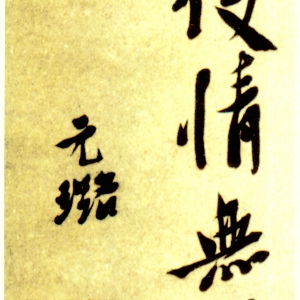 情無
元璐